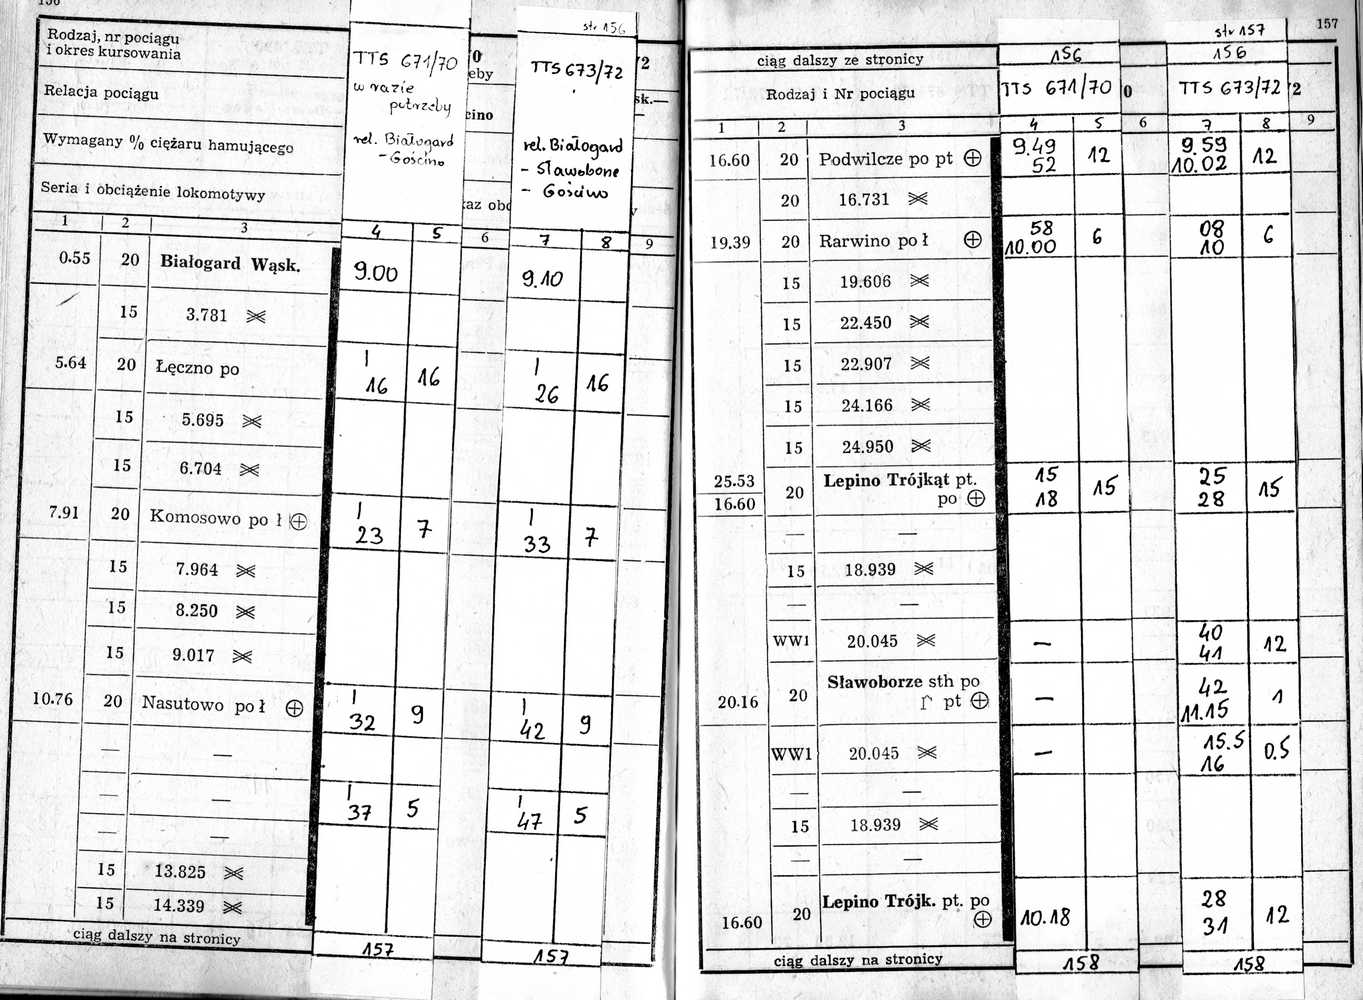 156
Rodzaj, nr pociągu
i okres kursowania
Relacja pociągu
Wymagany % ciężaru hamującego
Seria i obciążenie lokomotywy
TTS 671/70
w razie
potrzeby
rel. Białogard
- Gościno
0
eby
cino
az obc
str 156
TTS 673/72
rel. Białogard
- Sławobone
- Gościno
2
sk.—
1 2 3 4 5 6 7 8 9
0.55 20 Białogard Wąsk. 9.00 9.10
15 3.781
5.64 20 Łęczno po | 16 16 | 26 16
15 5.695
15 6.704
7.91 20 Komosowo po ł ⊕ | 23 7 | 33 7
15 7.964
15 8.250
15 9.017
10.76 20 Nasutowo po ł ⊕ | 32 9 | 42 9
— —
— — | 37 5 | 47 5
— —
15 13.825
15 14.339
ciąg dalszy na stronicy 157 157
157
str 157
ciąg dalszy ze stronicy 156 156
Rodzaj i Nr pociągu TTS 671/70 0 TTS 673/72 2
1 2 3 4 5 6 7 8 9
16.60 20 Podwilcze po pt ⊕ 9.49 52 12 9.59 10.02 12
20 16.731
19.39 20 Rarwino po ł ⊕ 58 10.00 6 08 10 6
15 19.606
15 22.450
15 22.907
15 24.166
15 24.950
25.53 Lepino Trójkąt pt. 15 25
16.60 20 po ⊕ 18 15 28 15
— —
15 18.939
— —
WW1 20.045 — 40 41 12
Sławoborze sth po 42
20.16 20 pt ⊕ — 11.15 1
WW1 20.045 — 15.5 16 0.5
— —
15 18.939
— —
Lepino Trójk. pt. po 28
16.60 20 ⊕ 10.18 31 12
ciąg dalszy na stronicy 158 158